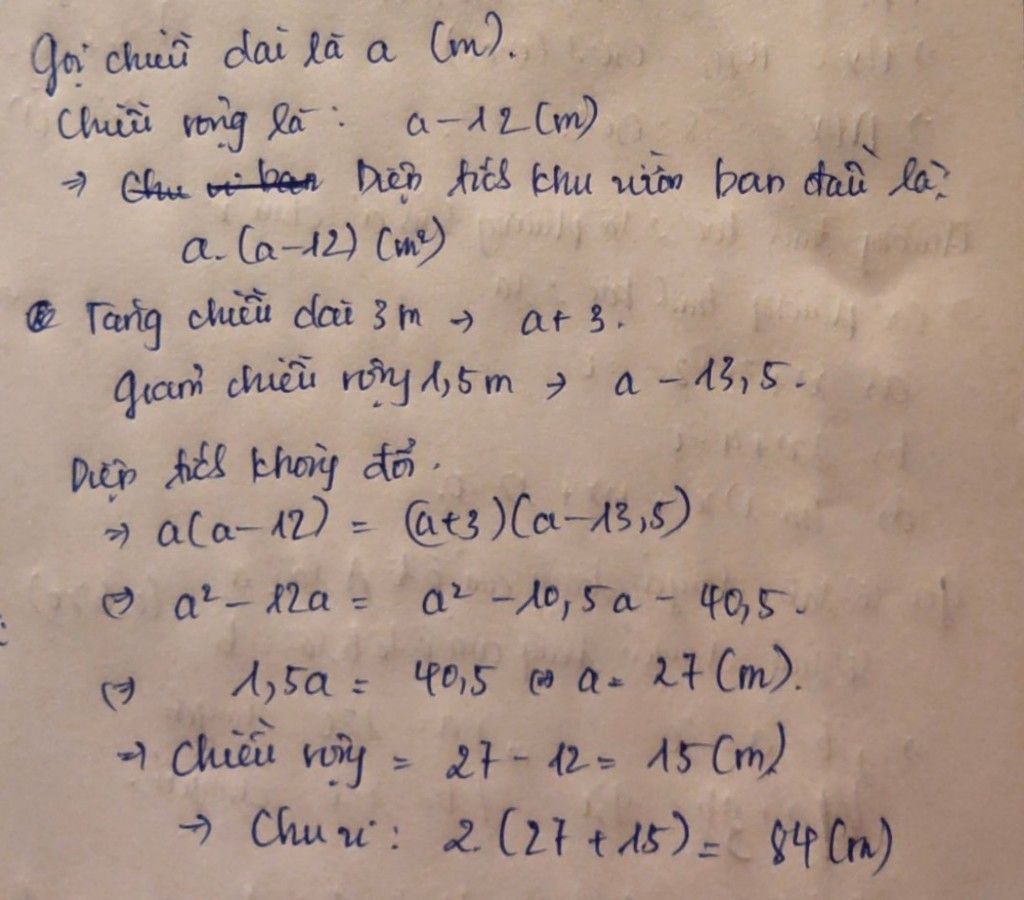 Gọi chiều dài là a (m).
Chiều rộng là: a - 12 (m)
⇒ Chu vi ban Diện tích khu vườn ban đầu là:
a. (a-12) (m²)
Tăng chiều dài 3m → a + 3.
Giảm chiều rộng 1,5m → a - 13,5.
Diện tích không đổi.
⇒ a(a-12) = (a+3)(a-13,5)
⇔ a² - 12a = a² - 10,5a - 40,5.
⇔ 1,5a = 40,5 ⇔ a = 27 (m).
⇒ Chiều rộng = 27 - 12 = 15 (m)
→ Chu vi: 2.(27 + 15) = 84 (m)